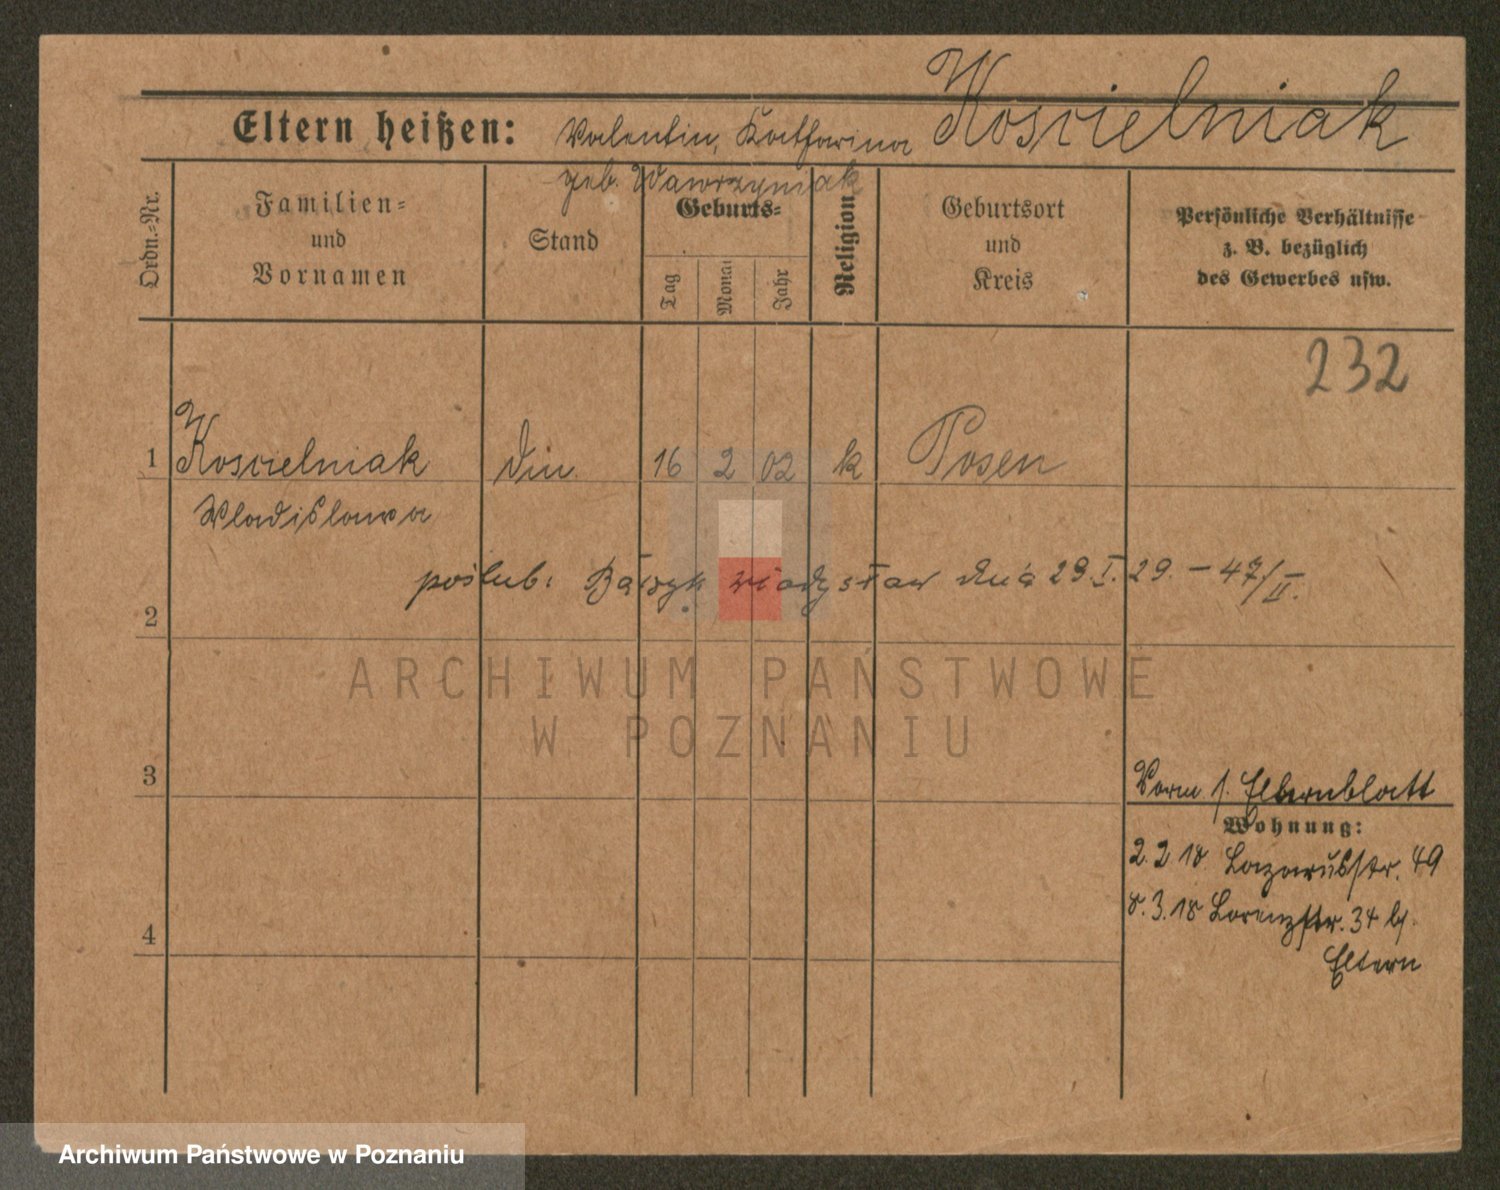 Koscielniak
Eltern heißen: Valentin, Katharina
geb. Wawrzyniak
Ordn.-Nr.
Familien-
und
Vornamen
Stand
Geburts-
Tag
Monat
Jahr
Religion
Geburtsort
und
Kreis
Persönliche Verhältnisse
z. B. bezüglich
des Gewerbes usw.
232
1 Koscielniak 16 2 02 k Posen
Wladislawa
poślub: Władysław dnia 29.I.29. - 47/II.
2
ARCHIWUM PAŃSTWOWE
W POZNANIU
3
Vorm s. Elternblatt
Wohnung:
2.2.18 Lazarusstr. 49
8.3.18 Lorenzstr. 34 b/
Eltern
4
Archiwum Państwowe w Poznaniu